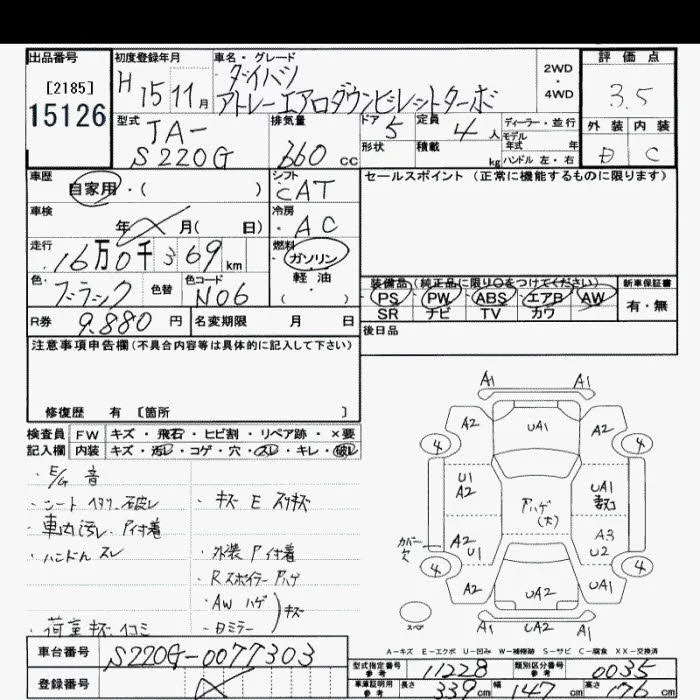 出品番号
[2185]
15126
初度登録年月
H 15 11月
車名・グレード
ダイハツ
アトレーエアロダウンビレットターボ
2WD
・
4WD
評価点
3.5
外装 内装
D C
型式
JA-
S220G
排気量
660 cc
ドア 5
定員 4人
形状
積載 kg
ディーラー・並行
モデル
年式 年
ハンドル 左・右
車歴
自家用・( )
シフト
CAT
セールスポイント (正常に機能するものに限ります)
車検
年 月( 日)
冷房
AC
走行
16万0千369km
燃料
ガソリン
軽油
( )
色
ブラック
色替
色コード
N06
装備品(純正品に限り○をつけてください)
PS PW ABS エアB AW
SR ナビ TV カワ
新車保証書
有・無
R券 9.880円
名変期限 月 日
後日品
注意事項申告欄(不具合内容等は具体的に記入して下さい)
修復歴 有 [箇所 ]
検査員 FW キズ・飛石・ヒビ割・リペア跡・×要
記入欄 内装 キズ・汚レ・コゲ・穴・スレ・キレ・破レ
・E/G 音
・シート ヘタリ 破レ
・車内汚レ・P付着
・ハンドル スレ
・荷室 キズ・凹コミ
・キズ E スリキズ
・外装 P付着
・Rスポイラー Pハゲ
・AW ハゲ
・Dミラー
キズ
A1 A1
A2 UA1 A2
4 4
U1
A2
Pハゲ
(大)
UA1
A2
U1
A3
U2
カバー
欠
4 4
A2 UA2 UA1
A1 UA2 A1
スペア
A-キズ E-エクボ U-凹み W-補修跡 S-サビ C-腐食 XX-交換済
車台番号 S220G-0077303
登録番号
型式指定番号
参考
11228
類別区分番号
参考
0035
車庫証明用
参考
長さ 339cm 幅 147cm 高さ 176cm